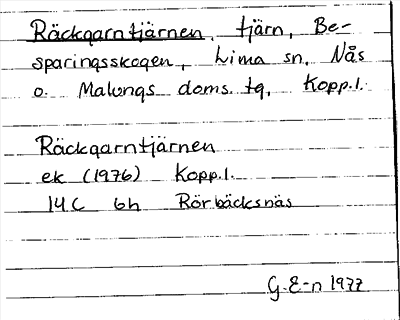 Räckgarntjärnen, tjärn, Be-
sparingsskogen, Lima sn, Nås
o. Malungs doms. tg, Kopp.l.
Räckgarntjärnen
ek (1976) Kopp.l.
14C 6h Rörbäcksnäs
G.E-n 1977